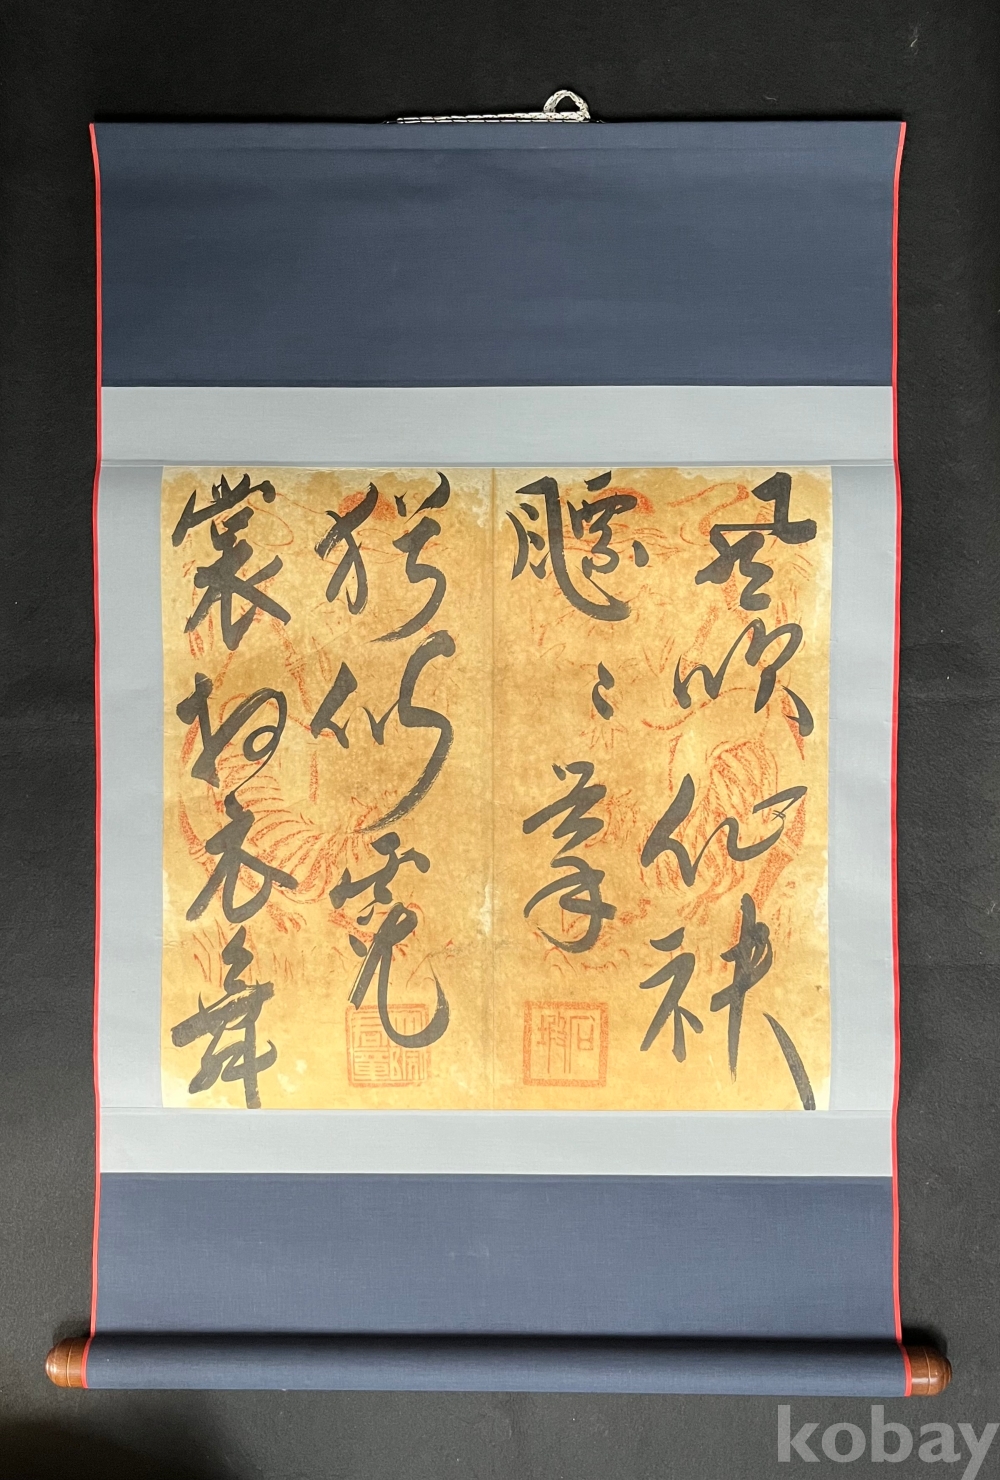 風吹仙袂
飄々舉
猶似霓
裳羽衣舞
kobay